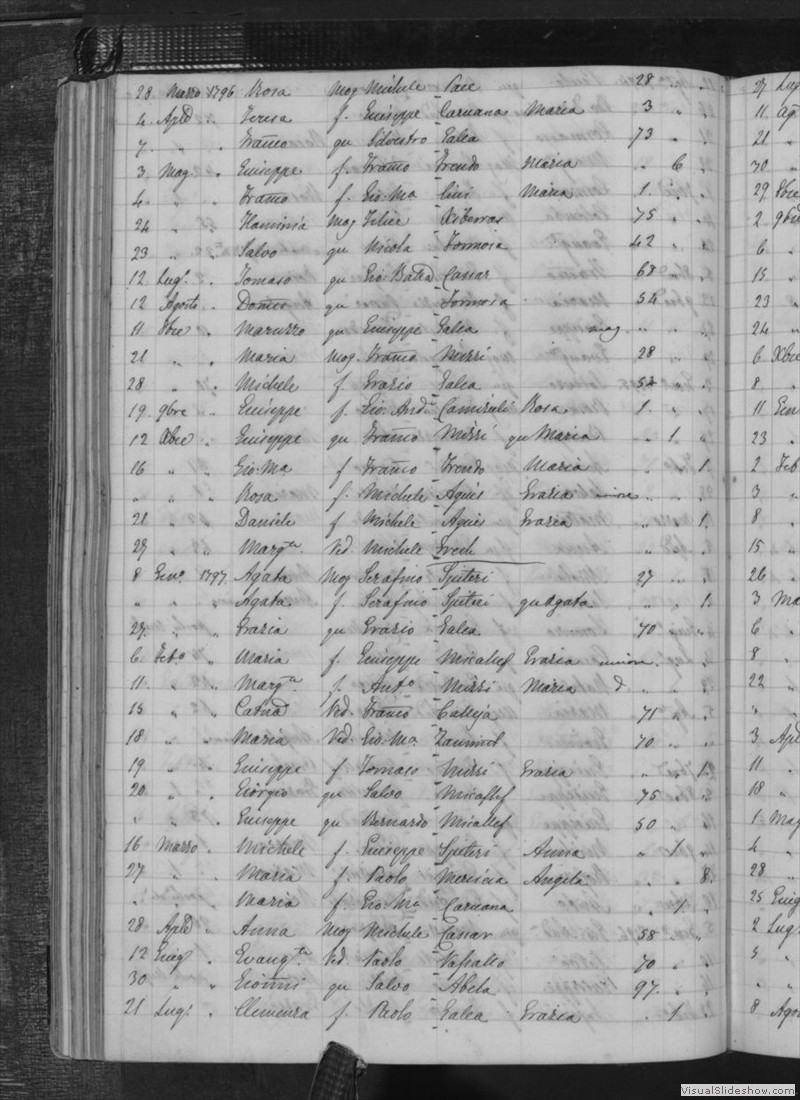 28 Marzo 1796 Rosa Mog Michele Pace 28 " "
4 Aple " Teresa f. Giuseppe Caruana Maria 3 " "
7 " " Franco qu Silvestro Galea 73 " "
3 Mag. " Giuseppe f. Franco Trendo Maria " 6 "
4 " " Franco f. Gio. Ma Maria 1 " "
24 " " Flaminia Mog Felice Xiberras 75 " "
23 " " Salvo qu Nicola Formosa 42 " "
12 Lugl. " Tomaso qu Gio Batta Cassar 68 " "
12 Agosto " Domco qu Formosa 54 " "
11 8bre " Maruzzo qu Giuseppe Galea mag " " "
21 " " Maria Mog. Franco Mizzi 28 " "
28 " " Michele f Grazio Galea 52 " "
19 9bre " Giuseppe f. Gio. And: Camisuli Rosa 1 " "
12 Xbre " Giuseppe qu Franco Mizzi qu Maria " 1 "
16 " " Gio. Ma f Franco Trendo Maria " " 1
" " " Rosa f. Michele Agius Grazia minore " "
21 " " Daniele f Michele Agius Grazia " " 1
27 " " Margta Ved. Michele
8 Geno 1797 Agata Mog Serafino Spiteri 27 " "
" " " Agata f. Serafino Spiteri qu Agata " " 1
27 " " Grazia qu Grazio Galea 70 " "
6 Febo " Maria f. Giuseppe Micallef Grazia minore "
11 " " Margta f. Anto Mizzi Maria d " "
15 " " Catna Ved. Franco Calleja 71 " "
18 " " Maria Ved Gio. Ma. Zammit 70 " "
19 " " Giuseppe f Tomaso Mizzi Grazia " " 1
20 " " Giorgio qu Salvo Micallef 75 " "
" " " Giuseppe qu Bernardo Micallef 50 " "
16 Marzo " Michele f. Giuseppe Spiteri Anna " 1 "
27 " " Maria f. Paolo Angela " " 8
" " " Maria f. Gio Ma Caruana " 1 "
28 Aple " Anna Mog Michele Cassar 58 " "
12 Giug " Evangta Ved. Paolo Vassallo 70 " "
30 " " Gionni qu Salvo Abela 97 " "
21 Lugl " Clemenza f. Paolo Galea Grazia " 1 "
27 Lug
11 Ag
21 "
30 "
29 8bre
2 9bre
6 "
15 "
23 "
24 "
6 Xbre
8 "
11 Gen
23 "
2 Feb
3 "
8 "
15 "
26 "
3 Ma
6 "
8 "
22 "
" "
3 Apl
11 "
18 "
1 Mag
4 "
28 "
25 Giug
2 Lugl
5 "
" "
8 Ago
VisualSlideshow.com